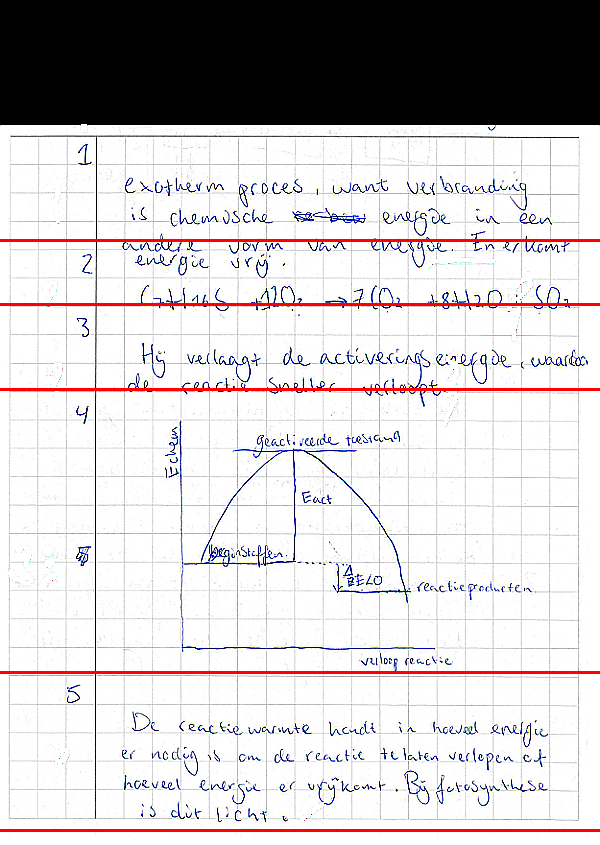 1
exotherm proces, want verbranding
is chemische energie in een
andere vorm van energie. En er komt
energie vrij.
2
C7H16S +12O2 → 7CO2 +8H2O + SO2
3
Hij verlaagt de activeringseinergie, waardoor
de reactie sneller verloopt.
4
Echem
geactiveerde toestand
Eact
beginstoffen.
ΔE<0
reactieproducten
verloop reactie
5
De reactiewarmte houdt in hoeveel energie
er nodig is om de reactie te laten verlopen of
hoeveel energie er vrijkomt. Bij fotosynthese
is dit licht.